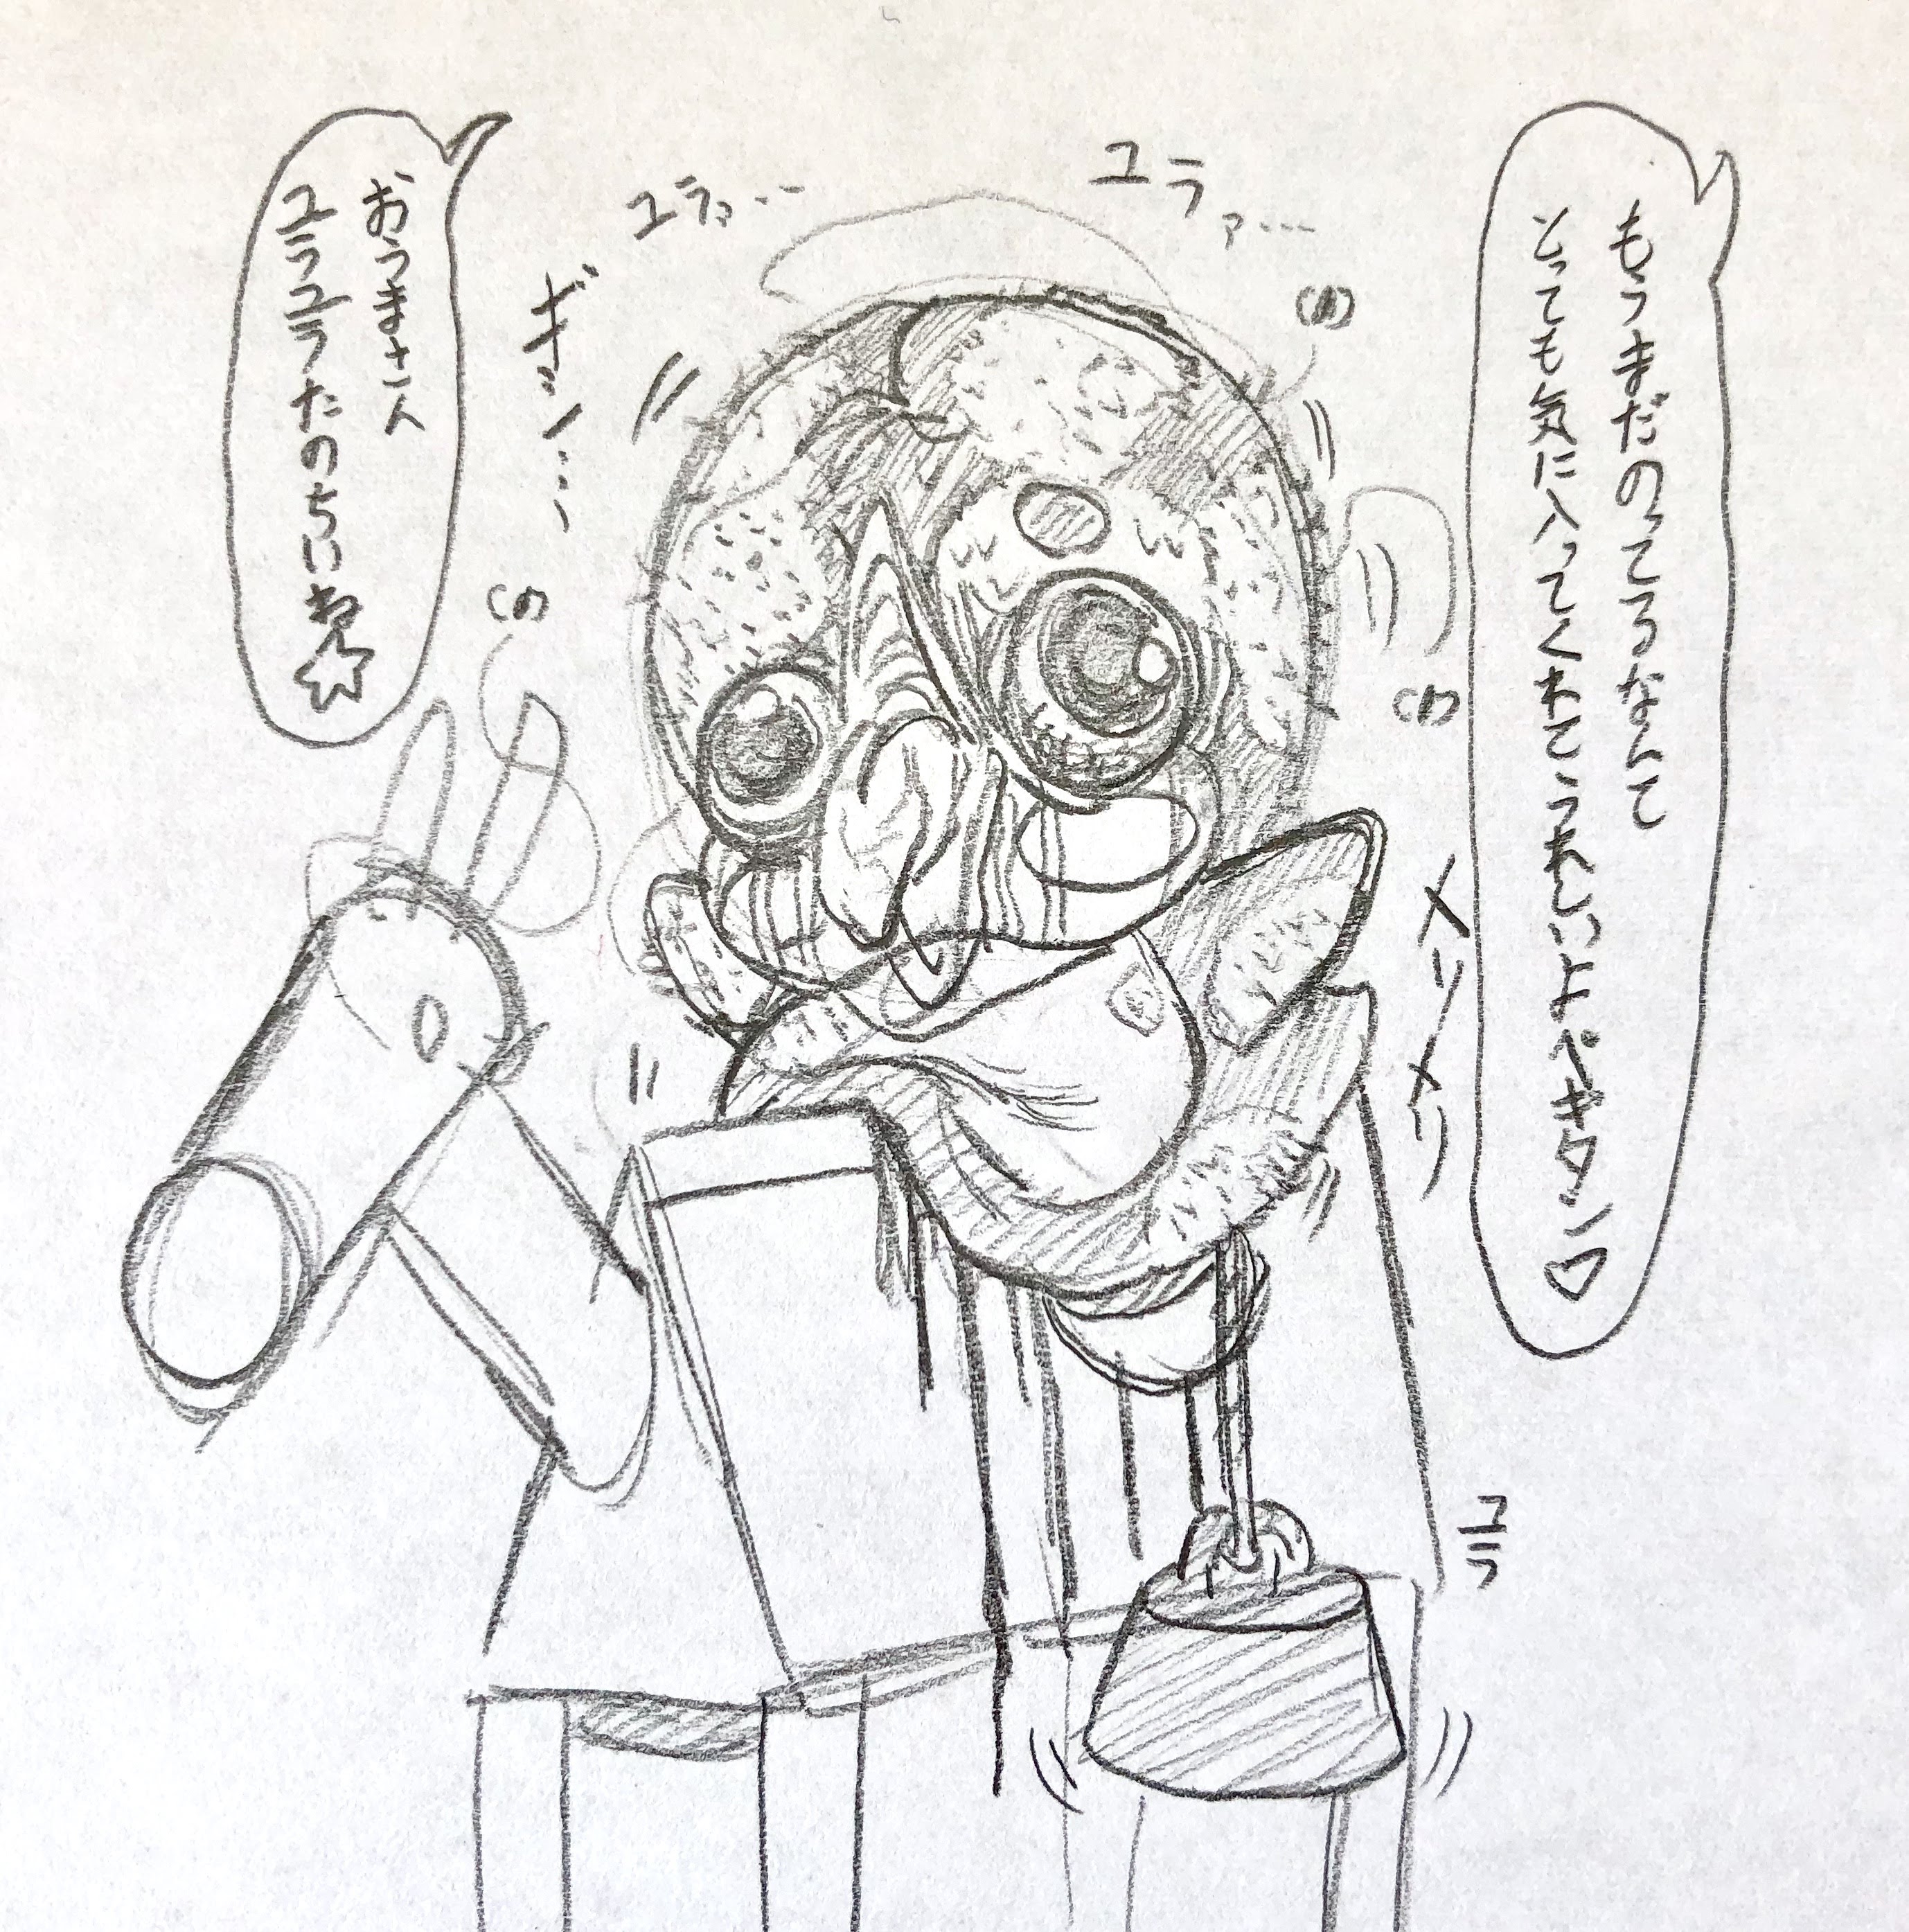 もうまだのってるなんて
とっても気に入ってくれてうれしいよペギタン♡
ユラァ…
ユラァ…
ギシ…
おうまさん
ユラユラたのちいね☆
メリメリ
ユラ